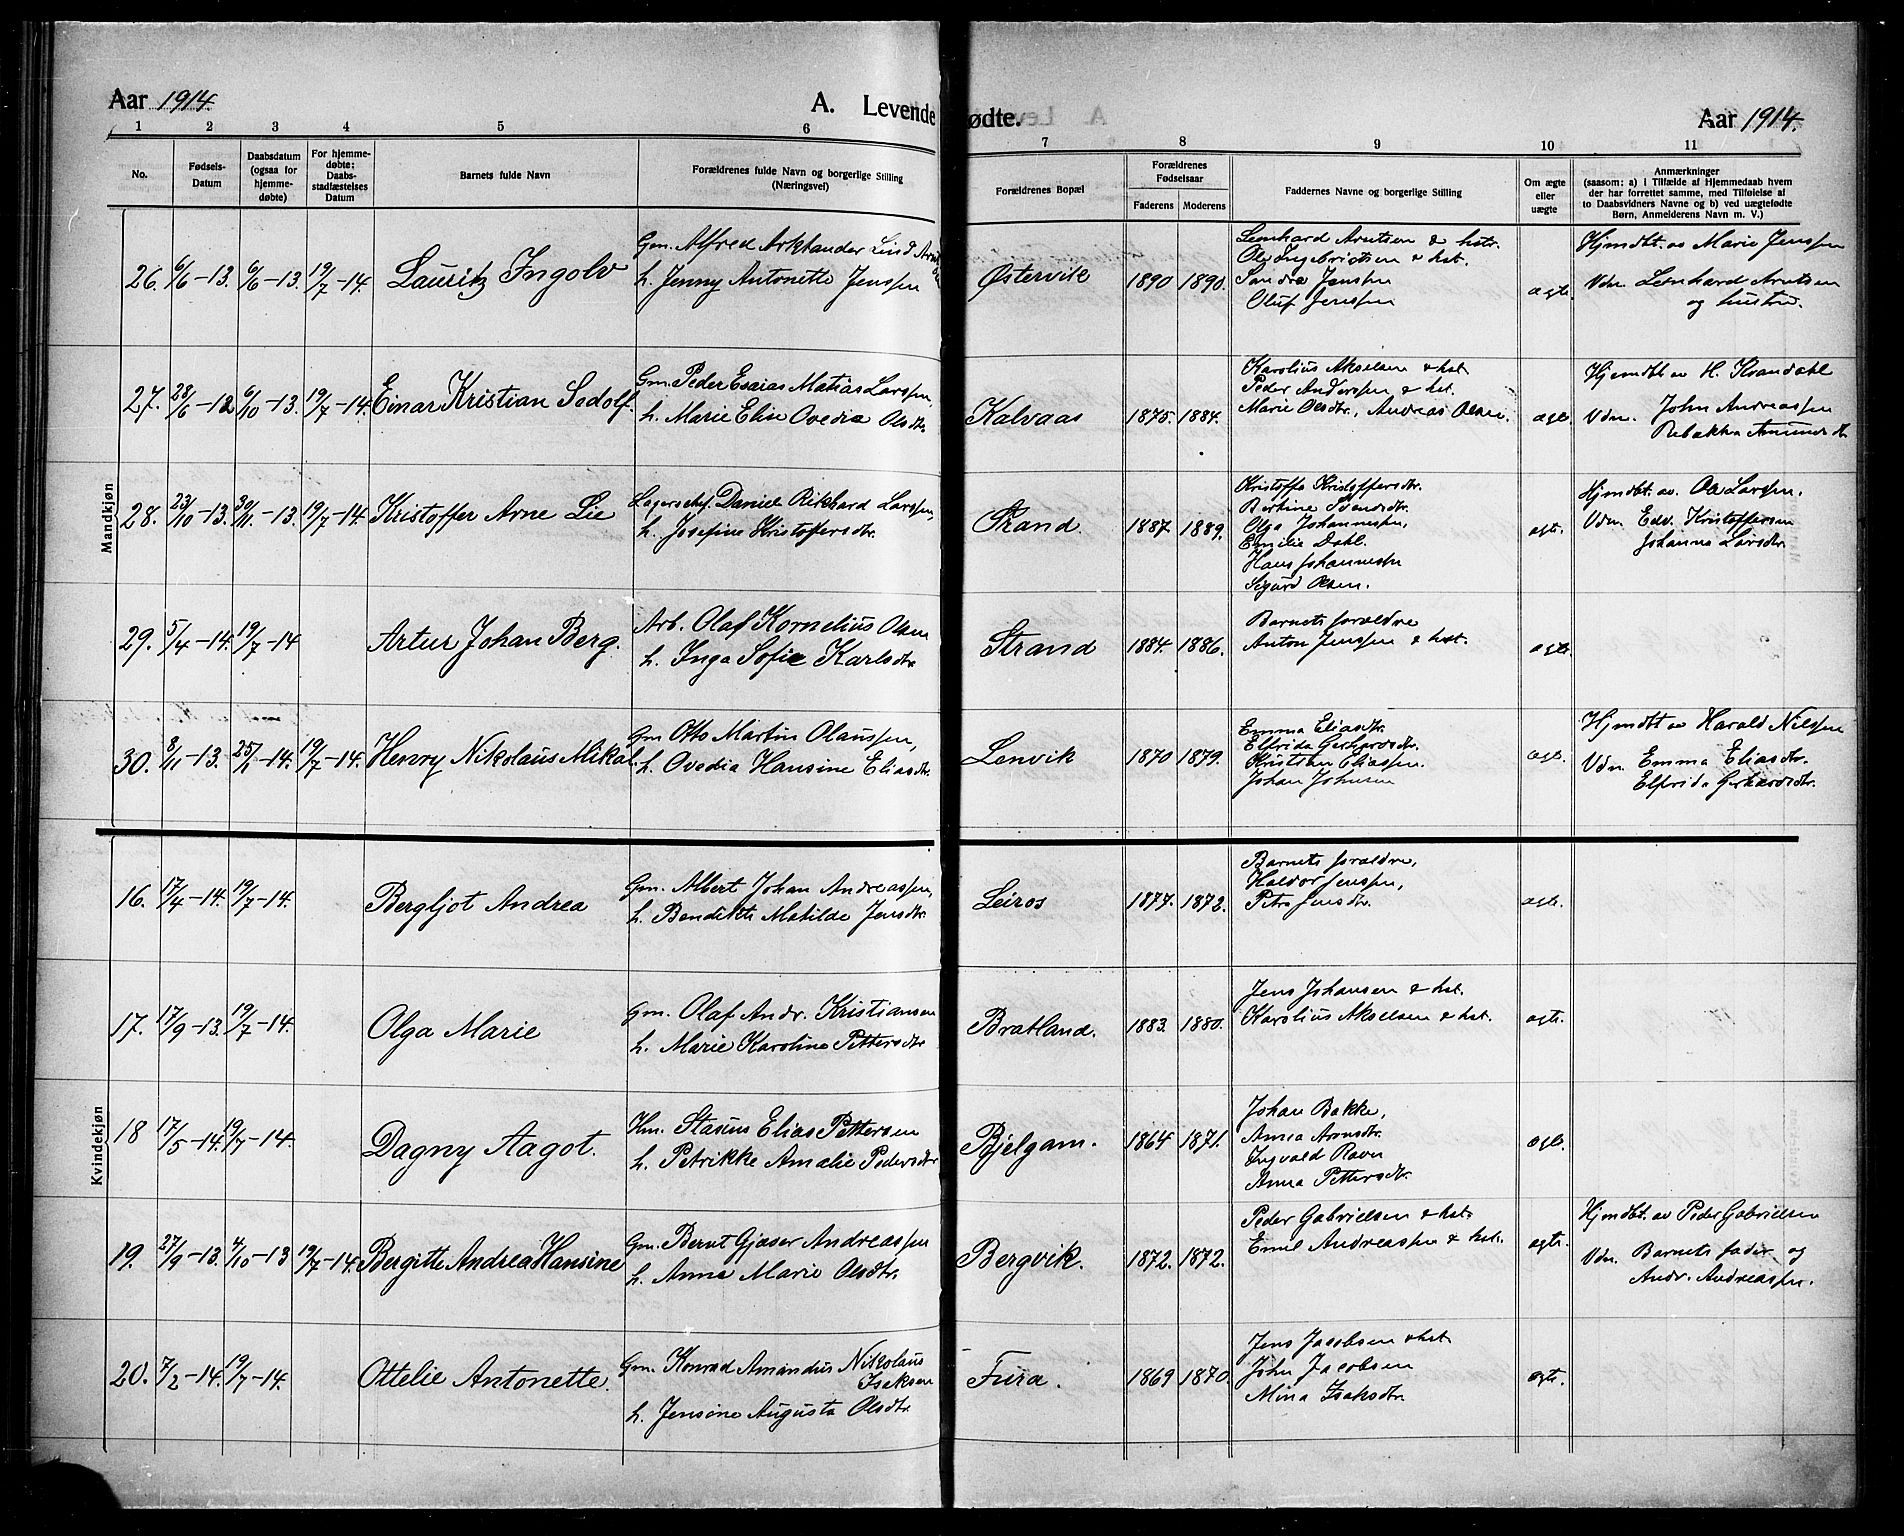 Aar 1914.
A. Levende
ødte.
Aar 1914.
1 2 3 4 5 6 7 8 9 10 11
No.
Fødsels-
Datum
Daabsdatum
(ogsaa for
hjemme-
døbte)
For hjemme-
døbte:
Daabs-
stadfæstelses
Datum
Barnets fulde Navn
Forældrenes fulde Navn og borgerlige Stilling
(Næringsvei)
Forældrenes Bopæl
Forældrenes
Fødselsaar
Faderens Moderens
Faddernes Navne og borgerlige Stilling
Om ægte
eller
uægte
Anmærkninger
(saasom: a) i Tilfælde af Hjemmedaab hvem
der har forrettet samme, med Tilføielse af
to Daabsvidners Navne og b) ved uægtefødte
Børn, Anmelderens Navn m. V.)
Mandkjøn
26. 6/6-13. 6/6-13. 19/7-14. Lauritz Ingolv
Gm. Alfred Arktander Lind
h. Jenny Antonette Jenssen
Østervik 1890 1890.
Lenhard Arntsen & hst.
Ole Ingebrigtsen & hst.
Sandra Jenssen
Oluf Jenssen
ægte.
Hjmdbt. av Marie Jenssen
Vdn. Lenhard Arntsen
og hustru.
27. 28/6-13. 6/10-13. 19/7-14. Einar Kristian Sedolf.
Gm. Peder Esaias Matias Larssen,
h. Marie Elise Ovedia Olsdtr.
Kalvaas 1875. 1884.
Karolius Akselsen & hst.
Peder Anderssen & hst.
Marie Olsdtr., Andreas Olsen.
ægte.
Hjemdbt av H. Kvandahl
Vdn. John Andreassen
Rebakka Amundsdtr.
28. 23/10-13. 30/11-13. 19/7-14. Kristoffer Arne Lie
Lagerschef. Daniel Rikhard Larssen,
h. Josefine Kristoffersdtr.
Strand. 1887. 1889.
Kristoffa Kristoffersdtr.
Bertine Svendsdtr.
Olga Johannessen,
Emilie Dahl.
Hans Johannessen
Sigurd Olsen.
ægte.
Hjmdbt. av. Ole Larssen.
Vdn. Edv. Kristoffersen
Johanna Larsdtr.
29. 5/4-14. 19/7-14 Artur Johan Berg.
Arb. Olaf Kornelius Olsen
h. Inga Sofie Karlsdtr
Strand 1884. 1886.
Barnets forældre
Anton Jenssen & hst.
ægte.
30. 8/11-13. 25/1-14. 19/7-14. Henry Nikolaus Mikal.
Gm Otto Martin Olaussen,
h. Ovedia Hansine Eliasdtr.
Lenvik 1870 1879.
Emma Eliasdtr.
Elfrida Gerhardsdtr.
Kristian Eliassen.
Johan Johnsen
ægte.
Hjmdbt av Harald Nilssen
Vdn. Emma Eliasdtr.
Elfrida Gerhardsdtr.
Kvindekjøn
16. 17/4-14. 19/7-14. Bergljot Andrea
Gm. Albert Johan Andreassen,
h. Bendikte Matilde Jensdtr.
Leiros 1877. 1872.
Barnets forældre,
Haldor Jenssen,
Petra Jensdtr.
ægte.
17. 17/9-13. 19/7-14. Olga Marie
Gm. Olaf Andr. Kristiansen
h. Marie Karoline Pettersdtr
Bratland. 1883. 1880.
Jens Johansen & hst.
Karolius Akselsen & hst.
ægte.
18 17/5-14. 19/7-14. Dagny Aagot.
Hm. Stasius Elias Pettersen
h. Petrikke Amalie Pedersdtr
Bjelgam. 1864 1871.
Johan Bakke,
Anna Arnsdtr.
Ingvald Ravn
Anna Pettersdtr.
ægte.
19. 27/9-13. 4/10-13 19/7-14. Bergitte Andrea Hansine
Gm. Bernt Gjæser Andreassen
h. Anne Marie Olsdtr.
Bergvik. 1872. 1872.
Peder Gabrielsen & hst.
Emil Andreassen & hst.
ægte.
Hjmdbt. av Peder Gabrielsen
Vdn. Barnets fader og
Andr. Andreassen.
20. 7/2-14. 19/7-14. Ottelie Antonette.
Gm. Konrad Amandus Nikolaus
Isaksen
h. Jensine Augusta Olsdtr.
Fura. 1869 1870
Jens Jacobsen & hst.
John Jacobsen
Mina Isaksdtr.
ægte.